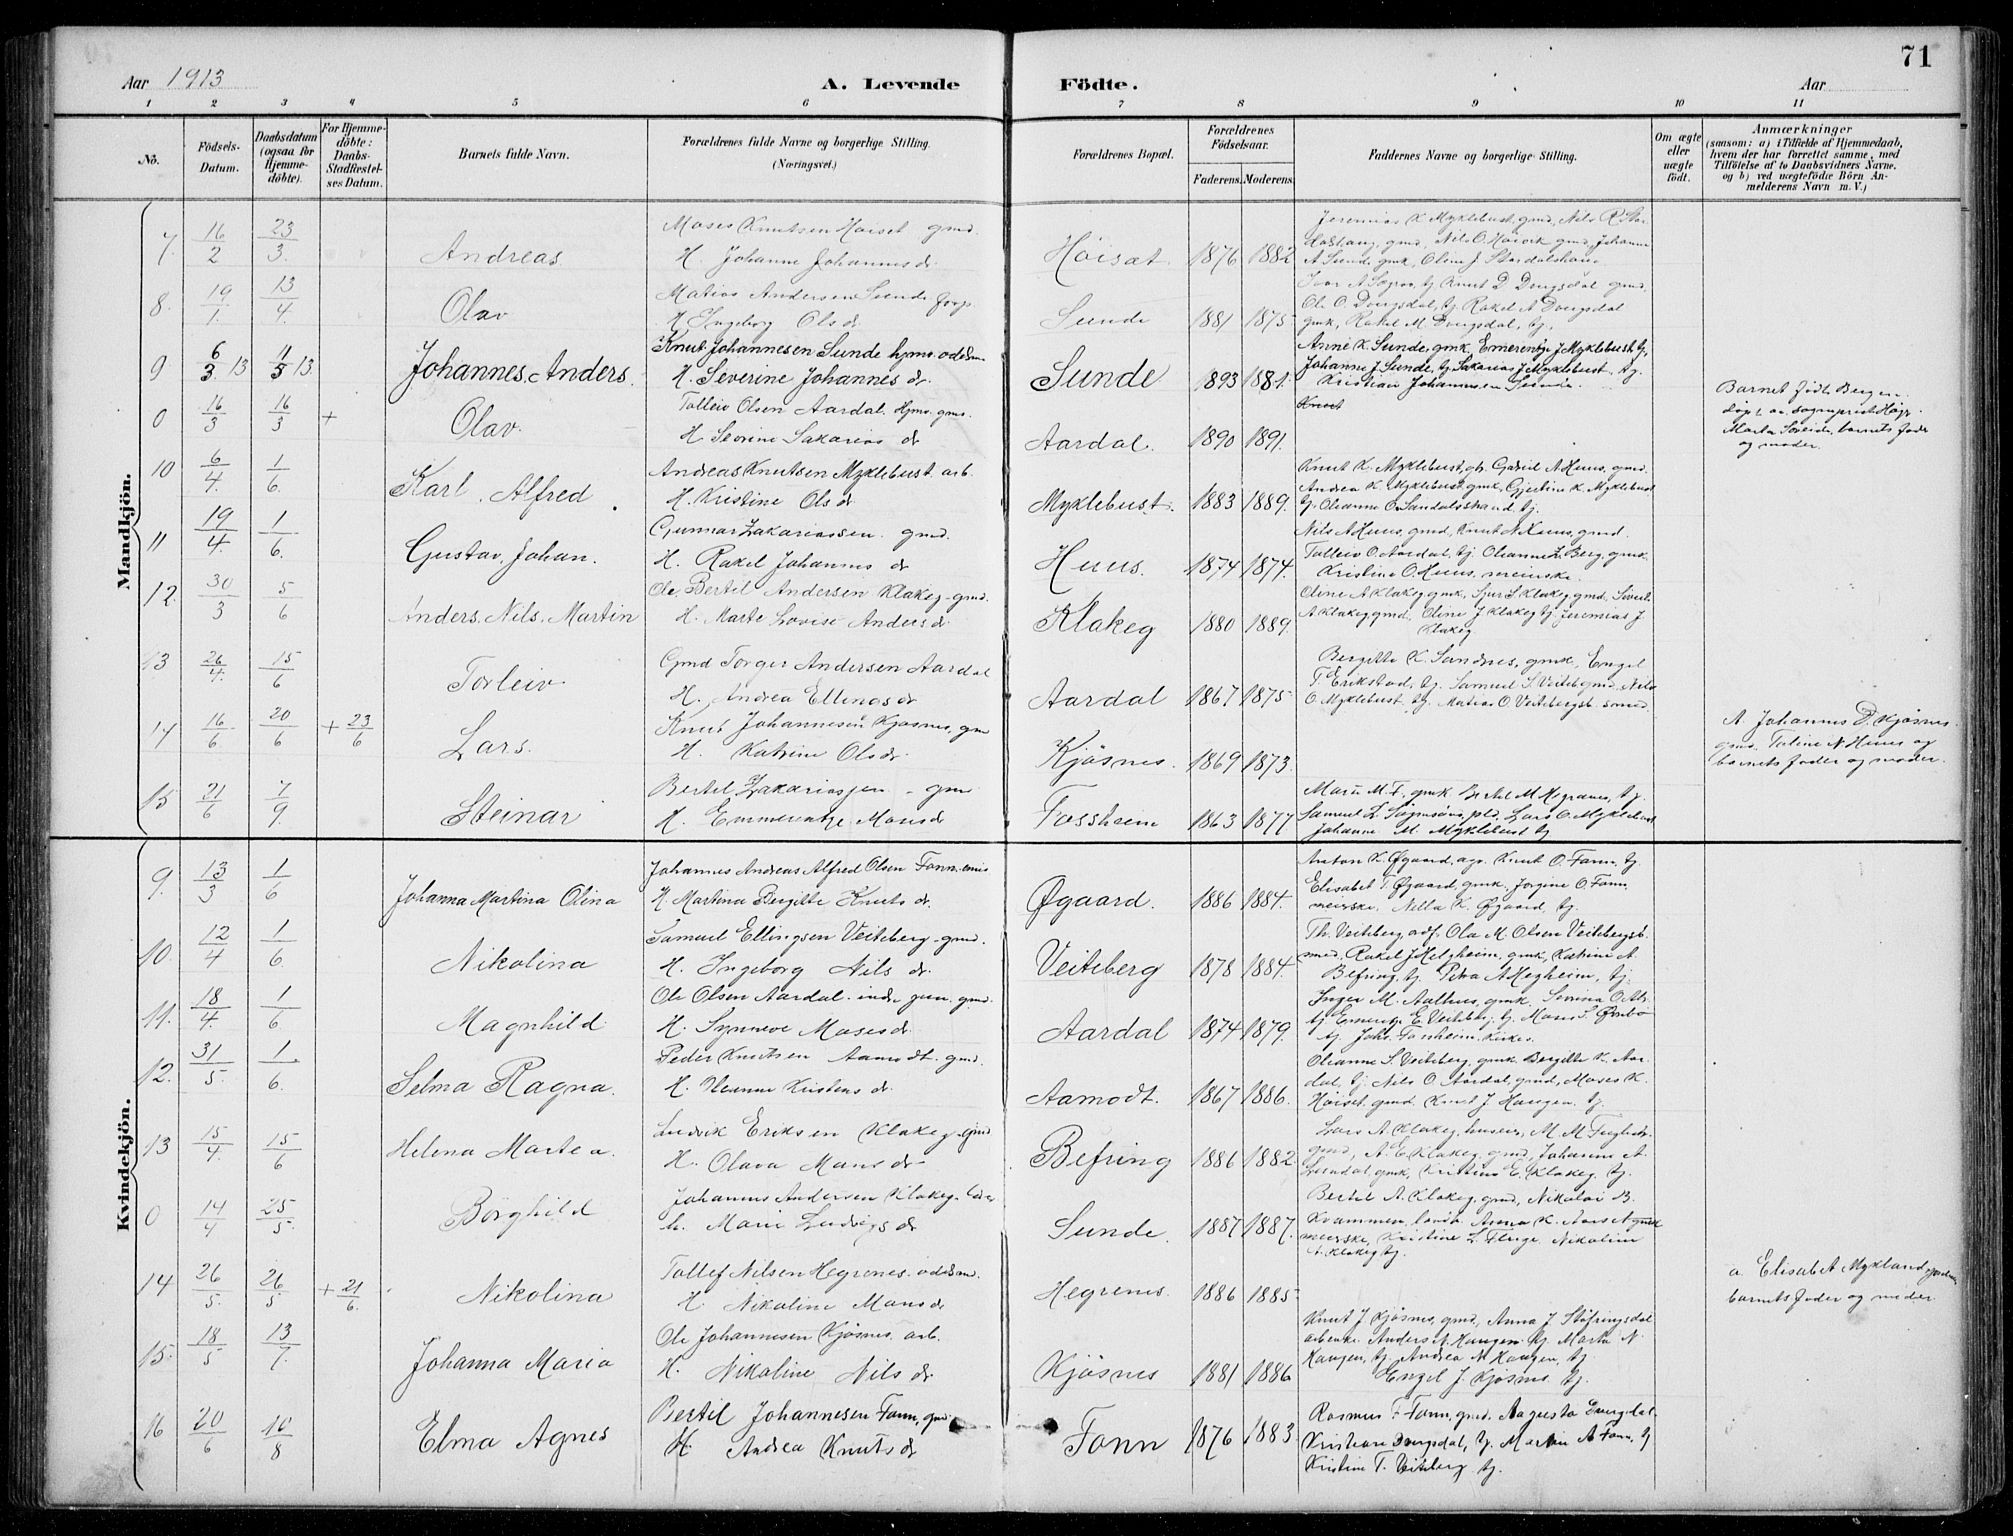 71
Aar 1913
A. Levende Födte.
Aar
1 2 3 4 5 6 7 8 9 10 11
No.
Födsels-Datum.
Daabsdatum (ogsaa for Hjemme-döbte).
For Hjemme-döbte: Daabs-Stadfæstel-ses Datum.
Barnets fulde Navn.
Forældrenes fulde Navne og borgerlige Stilling. (Næringsvei.)
Forældrenes Bopæl.
Forældrenes Födselsaar.
Faderens. Moderens.
Faddernes Navne og borgerlige Stilling.
Om ægte eller uægte födt.
Anmærkninger
(saasom: a) i Tilfælde af Hjemmedaab,
hvem der har forrettet samme, med
Tilföielse af to Daabsvidners Navne.
og b) ved uægtefödte Börn An-
melderens Navn m. V.)
Mandkjön.
7. 16/2 23/3. Andreas
Moses Knutsen Høiset gmd.
H. Johanne Johannesdr.
Høiset. 1876 1882
Jeremias K Myklebust, gmd, Nils R
gmd, Nils O gmd, Johanne
A Sunde, gmk, Oline J
8. 19/1. 13/4. Olav
Matias Andersen Sunde
H. Ingeborg Olsdr
Sunde 1881 1875
tj. Knut D Dvergsdal gmd,
Ole O. Dvergsdal, tj Rakel A Dvergsdal
gmk, Rakel M Dvergsdal, tj,
9. 6/3 13 11/5 13. Johannes. Anders.
Knut Johannesen Sunde
H. Severine Johannesdr.
Sunde 1893 1881.
Anne K. Sunde, gmk, Emerentse J Myklebust tj,
Johanne J. Sunde, tj Sakarias J Myklebust. tj.
Kristian Johannesen Sunde.
Knut
0 16/3 16/3 + Olav.
Tolleiv Olsen Aardal. gmd.
H Severine Sakarias dr
Aardal. 1890 1891.
Barnet født Bergen
døpt av sogneprest
Marta barnets fader
og moder.
10 6/4. 1/6. Karl. Alfred
Andreas Knutsen Myklebust. arb
H. Kristine Olsdr
Myklebust. 1883 1889.
Knut K. Myklebust, Gabriel A Huus, gmd.
Andrea K. Myklebust gmk, Gjertine K. Myklebust
tj. Oleanne O. Sandalsstrand, tj.
11 19/4. 1/6. Gustav. Johan.
Gunnar Zakariassen. gmd.
H. Rakel Johannes dr
Huus. 1874 1874.
Nils A Huus, gmd, Knut N Huus, gmd.
Tolleiv O. Aardal, tj. Oleanne Z Berg, gmk.
Kristine O. Huus, meierske.
12. 30/3 5/6 Anders. Nils. Martin
Ole Bertil Andersen Klakeg gmd.
H. Marte Lovise Andersdr
Klakeg 1880 1889.
Oline A Klakeg gmk, Sjur S Klakeg, gmd, Sivert
A Klakeg gmd, Oline J Klakeg tj Jeremias J
Klakeg
13 26/4. 15/6 Torleiv
Gmd Torger Andersen Aardal
H. Andrea Ellingsdr
Aardal 1867 1875
Bergitte K. Sandnes, gmk, Engel
T. Erikstad, tj. Samuel S. Veiteb gmd, Nils
O. Myklebust tj. Matias O Veitebergsb. smed.
14 16/6 20/6 + 23/6 Lars.
Knut Johannesen Kjøsnes, gm
H. Katrine Olsdr
Kjøsnes. 1869 1873.
A Johannes D. Kjøsnes.
gmd. Taline N Huus og
barnets fader og moder.
15 21/6 7/9. Steinar
Bertel Zakariassen - gm
H. Emmerentse Monsdr
Fossheim 1863 1877
Mari M. F. gmk Bertel M Hegrenes, tj.
Samuel Z Lars O. Myklebust
Johanne M. Myklebust tj
Kvindekjön.
9. 13/3 1/6 Johanna Martina Olina
Johannes Andreas Alfred Olsen Fonn.
H. Martina Bergitte Knuts dr.
Øgaard. 1886 1884.
Anton K. Øgaard, Knut O. Fonn, tj.
Elisabet T. Øgaard, gmk. Jorgine O. Fonn,
meierske. Nella K. Øgaard, tj.
10. 12/4 1/6. Nikolina
Samuel Ellingsen Veiteberg - gmd.
H. Ingeborg Nils dr.
Veiteberg 1878 1884.
Th. Veiteberg Ola M. Olsen Veitebergsb.
smed, Rakel J Helgheim, gmk, Katrine A
Befring, tj Petra A Hegheim, tj.
11. 18/4. 1/6. Magnhild
Ole Olsen Aardal. indre gmd.
H. Synneve Mosesdr.
Aardal 1874 1879.
Inger M. Aalhus, gmk. Severina O
tj Emerentse E. Veiteberg tj. Mons S.
tj. Johs. Fossheim.
12. 31/5. 1/6. Selma Ragna.
Peder Knutsen Aamodt. gmd.
H. Kristens dr.
Aamodt. 1867 1886.
Oleanne S. Veiteberg, gmk. Bergitte K. Aar-
dal, tj Nils O Aardal, gmd, Moses K.
Høiset gmd. Knut J Haugen, tj.
13 15/4. 15/6 Helena Martea.
Ludvik Eriksen Klakeg. Gmd
H. Olava Monsdr
Befring 1886 1882.
Lars A. Klakeg,
gmd, A. E Klakeg, gmd, Johanne A
gmk, Kristine E. Klakeg, tj.
0 14/4 25/5. Borghild
Johannes Andersen Klakeg.
h. Marie Ludvigsdr
Sunde. 1887 1887.
Bertil A. Klakeg, gmd, Nikolai B.
Kvammen, Anna K.
meierske, Kristine L. Fluge. Nikoline
A. Klakeg tj.
14 26/5. 26/5 + 21/6. Nikolina
Tollef Nilsen Hegrenes. odelsmd.
H Nikoline Monsdr
Hegrenes. 1886 1885
a. Elisabet Mykland
barnets fader og moder
15. 18/5 13/7. Johanna Maria
Ole Johannesen Kjøsnes. arb.
H. Nikoline Nils dr
Kjøsnes 1881 1886
Knut J Kjøsnes, gmd, Anna J Støfringsdal
arbenke. Anders A. Haugen. tj. Marta N.
Haugen, tj. Andrea M Haugen, tj.
Engel J. Kjøsnes tj.
16 20/6 10/8 Elma Agnes
Bertil Johannesen Fonn, gmd
H. Andrea Knutsdr
Fonn 1876 1883
Rasmus F Fonn, gmd. Augusta Dvergsdal.
Kristiane Dvergsdal, tj. Martin A Fonn, tj
Kristine T. Veiteberg tj.